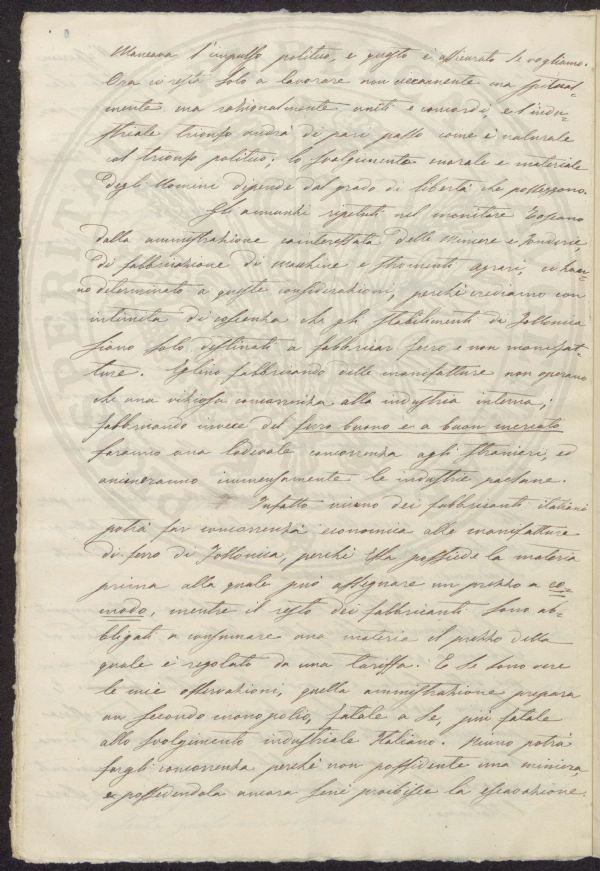 Mancava l'impulso politico, e questo è assicurato se vogliamo.
Ora ci resta solo a lavorare non
mente ma razionalmente uniti e concordi, e l'indu=
striale trionfo andrà di pari passo come è naturale
col trionfo politico; lo svolgimento morale e materiale
degli Uomini dipende dal grado di libertà che posseggono.
Gli annunzi ripetuti nel monitore Toscano
dalla amministrazione cointeressata delle Miniere e Fonderie,
di fabbricazione di macchine e stromenti agrari, ci han=
no determinato a queste considerazioni, perchè crediamo con
intimità di coscienza che gli stabilimenti di Follonica
siano solo destinati a fabbricar ferro e non manifat=
ture. Eglino fabbricando delle manifatture non operano
che una viziosa concorrenza alla industria interna;
fabbricando invece del ferro buono e a buon mercato
faranno una lodevole concorrenza agli stranieri, ed
animeranno immensamente le industrie paesane.
Infatto niuno dei fabbricanti italiani
potrà far concorrenza economica alle manifatture
di ferro di Follonica, perchè Essa possiede la materia
prima alla quale può assegnare un prezzo a co=
modo, mentre il resto dei fabbricanti sono ob=
bligati a consumare una materia il prezzo della
quale è regolato da una tariffa. E se sono vere
le mie osservazioni, quella amministrazione prepara
un secondo monopolio, fatale a se, più fatale
allo svolgimento industriale Italiano. Niuno potrà
fargli concorrenza perchè non possidente una miniera,
e possedendola ancora seni proibisce la escavazione.